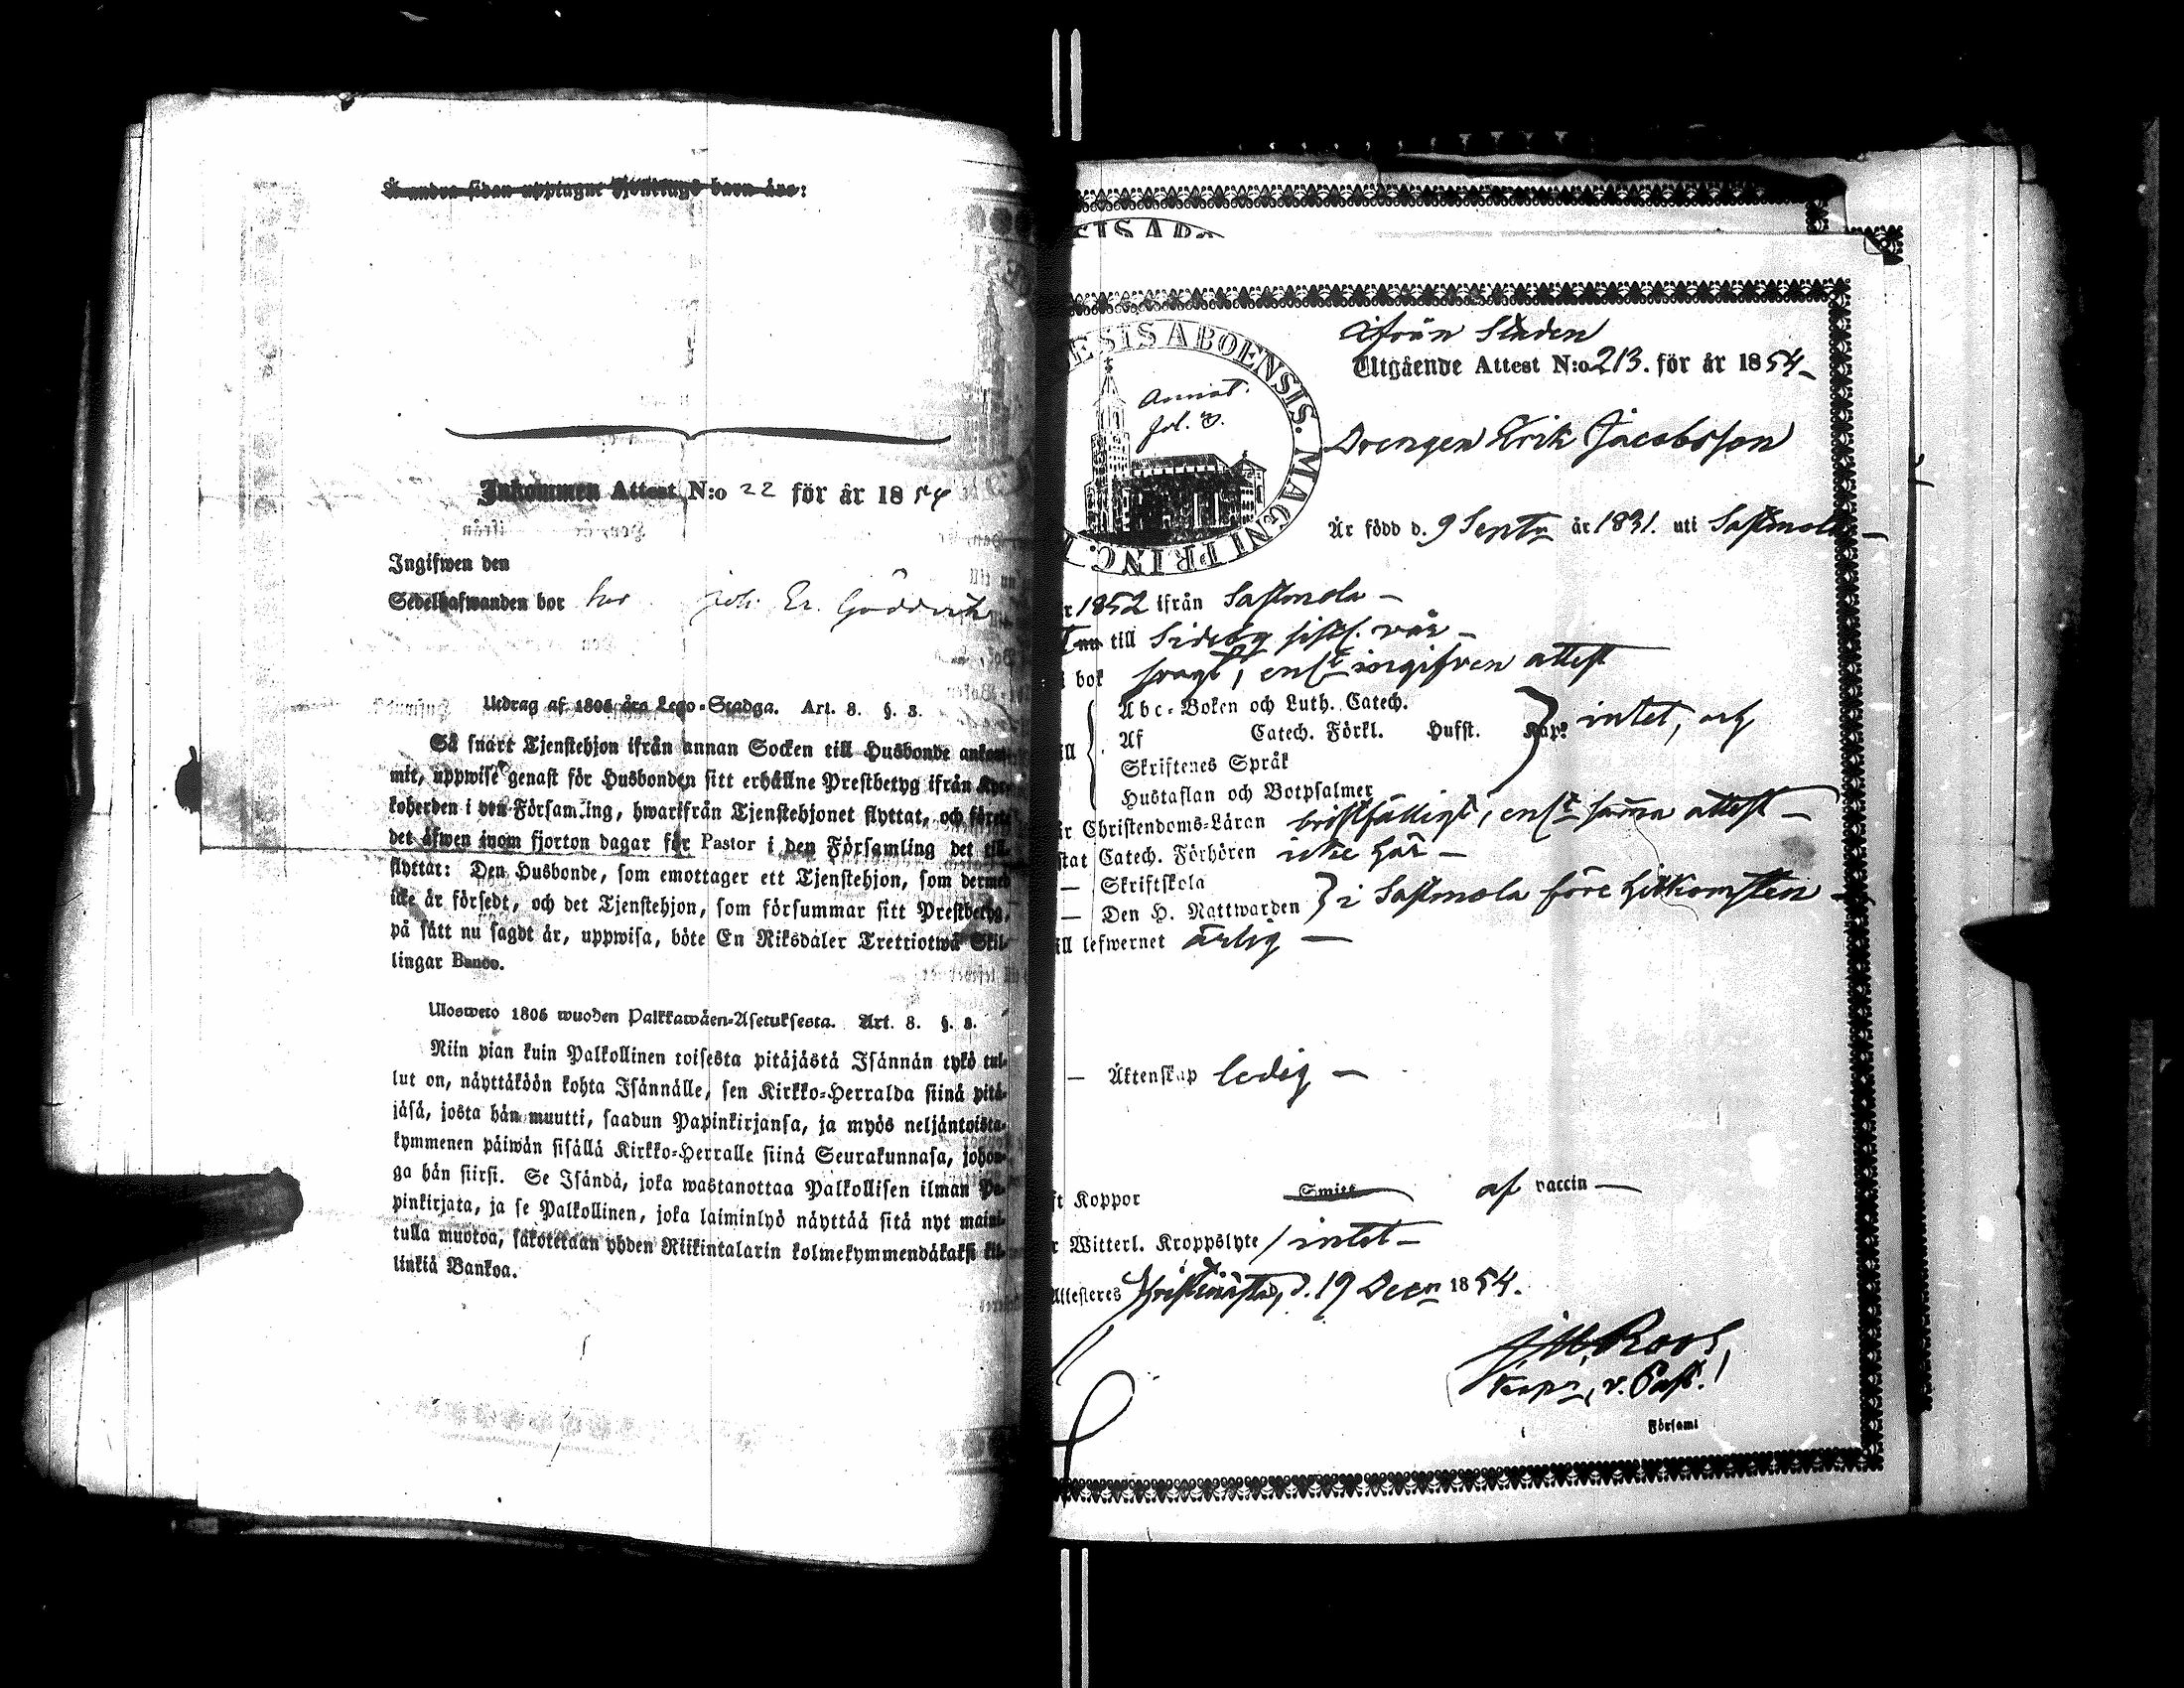 Å andra sidan upptagne Tjenstugs barn äro:
Inkommen Attest N:o 22 för år 1854
Ingifwen den
Sedelhafwanden bor hos Joh. Er.
Utdrag af 1805 års Lego-Stadga. Art. 8. §. 3.
Så snart Tjenstehjon ifrån annan Socken till Husbonde ankom-
mit, uppwise genast för Husbonden sitt erhållne Prestbetyg ifrån Kyr-
koherden i den Församling, hwarifrån Tjenstehjonet flyttat, och förete
det äfwen inom fjorton dagar för Pastor i den Församling det till-
flyttat: Den Husbonde, som emottager ett Tjenstehjon, som dermed
icke är försedt, och det Tjenstehjon, som försummar sitt Prestbetyg,
på sätt nu sagdt är, uppwisa, böte En Riksdaler Trettiotwå Skil-
lingar Banco.
Ulosweto 1805 wuoden Palkkawäen-Asetuksesta. Art. 8. §. 3.
Niin pian kuin Palkollinen toisesta pitäjästä Isännän tykö tul-
lut on, näyttäköön kohta Isännälle, sen Kirkko-Herralda siinä pitä-
jäsä, josta hän muutti, saadun Papinkirjansa, ja myös neljäntoista-
kymmenen päiwän sisällä Kirkko-Herralle siinä Seurakunnasa, johon-
ga hän siirsi. Se Isändä, joka wastanottaa Palkollisen ilman Pa-
pinkirjata, ja se Palkollinen, joka laiminlyö näyttää sitä nyt maini-
tulla muotoa, sakotetaan yhden Riikintalarin kolmekymmendäkaksi kil-
linkiä Bankoa.
ESIS ABOENSIS. MAGNI PRINC.
Ifrån Staden
Utgående Attest N:o 213. för år 1854
Annot.
fol. 8.
Drengen Erik Jacobsson
Är född d. 9 Septr år 1831. uti Sastmola
r 1852 ifrån Sastmola
nu till Sideby sistl. vår
i bok svagt, enst ingifven attest
Abc-Boken och Luth. Catech.
Af Catech. Förkl. Hufst. Kap. intet, och
Skriftenes Språk
Hustaflan och Botpsalmer
är Christendoms-Läran bristfälligt, enst samma attest
stat Catech. Förhören icke här
— Skriftskola
— Den H. Nattwarden } i Sastmola före hitkomsten
ill lefwernet ärlig
— Äktenskap ledig
ft Koppor Smitt af vaccin
r Witterl. Kroppslyte intet
Attesteres Christinestad, d. 19 Decr 1854.
J. M. Roos,
Kapn, v. Past.
Församl